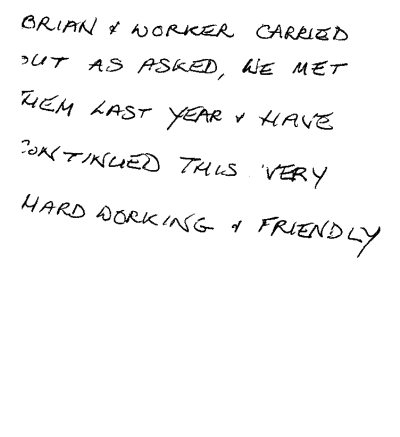 BRIAN & WORKER CARRIED
OUT AS ASKED, WE MET
THEM LAST YEAR & HAVE
CONTINUED THIS VERY
HARD WORKING & FRIENDLY